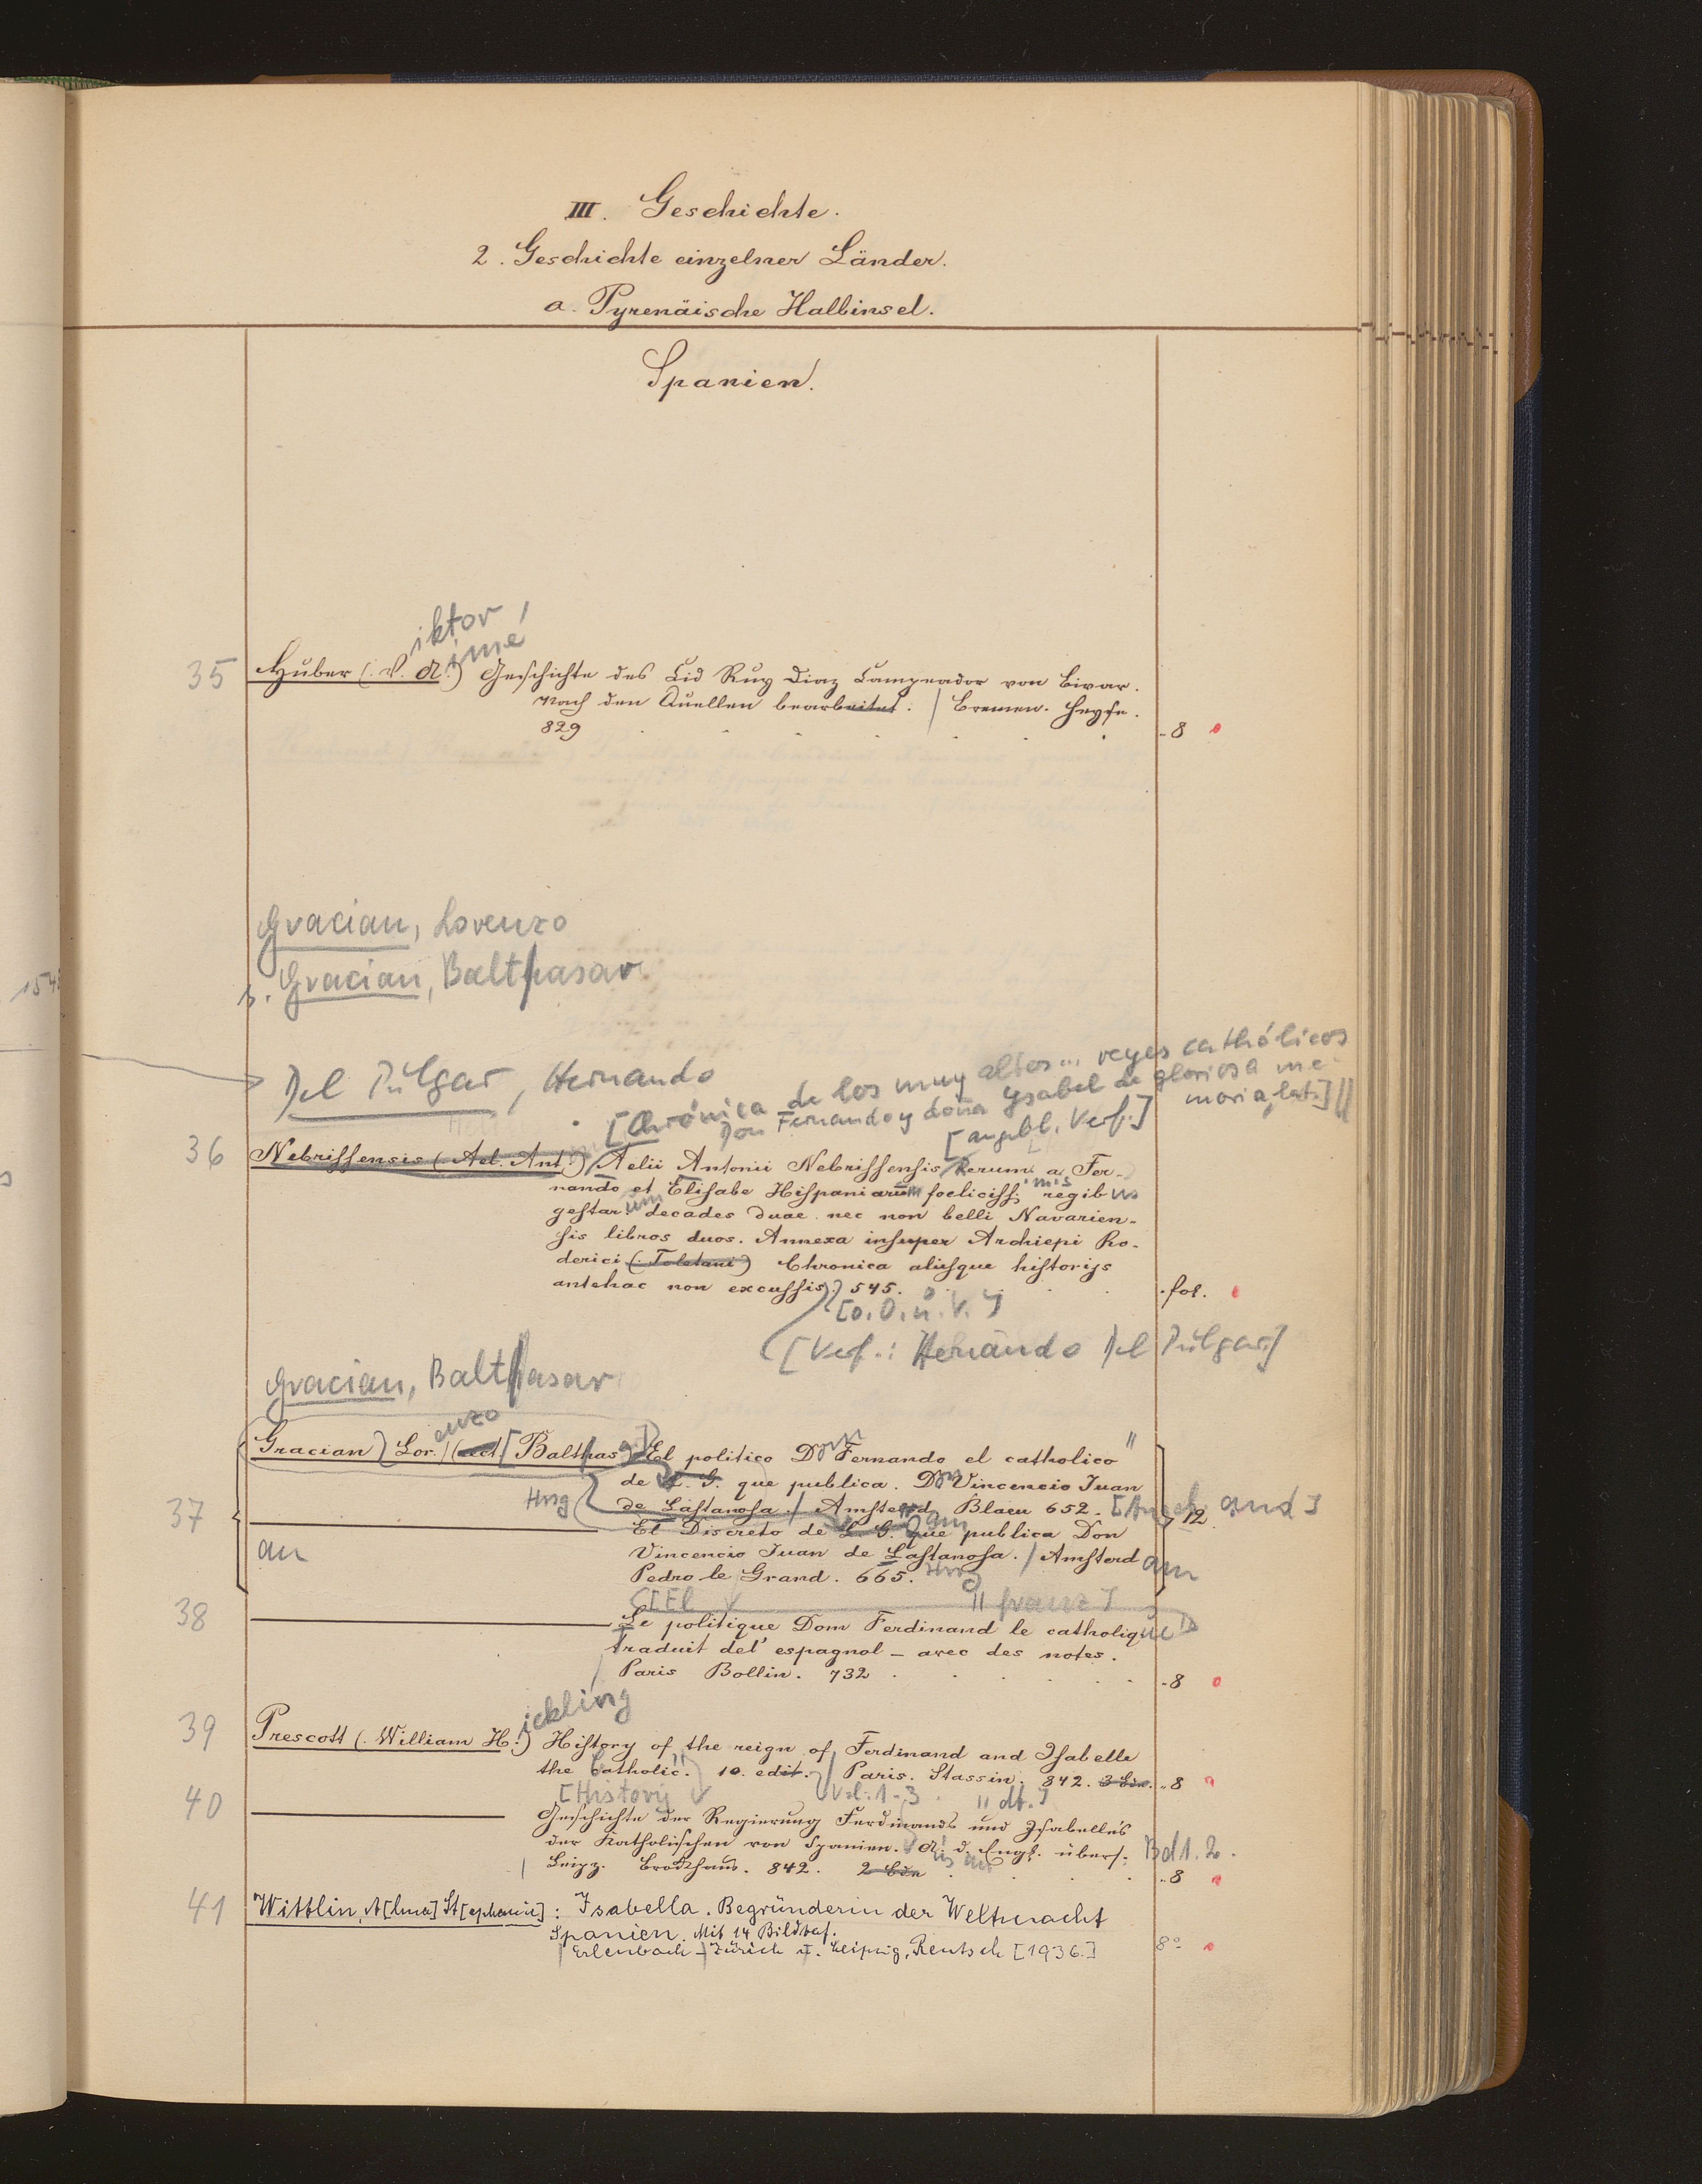 III. Geschichte.
2. Geschichte einzelner Länder.
a. Pyrenäische Halbinsel.
Spanien.
iktor
imé
35 Huber (V. A.) Geschichte des Cid Ruy Diaz Campeador von Bivar.
Nach den Quellen bearbeitet. / Bremen. Heyse.
829 . . . . . . -8
Gracian, Lorenzo
s. Gracian, Balthasar
154
Del Pulgar, Hernando
[Chrónica de los muy altos ... reyes cathólicos
Don Fernando y doña Ysabel de gloriosa me-
moria, lat.] ||
[angebl. Verf.]
36 Nebrissensis (Ael. Ant.) Aelii Antonii Nebrissensis Rerum a Fer-
nando et Elisabe Hispaniarum foeliciss.imis regibus
gestarum decades duae nec non belli Navarien-
sis libros duos. Annexa insuper Archiepi Ro-
derici (Toletani) Chronica aliisque historijs
antehac non excussis. 545. . . . fol.
[o. O. u. V.]
[Verf.: Hernando Del Pulgar]
Gracian, Balthasar
enzo
Gracian, Lor. [Balthas.] El politico Dom Fernando el catholico"
de L. G. que publica. Don Vincencio Juan
Hrsg de Lastanosa. / Amsterd. Blaeu 652. [Angeb. and]
37 12.
am
El Discreto de L. G. que publica Don
an Vincencio Juan de Lastanosa. / Amsterdam
Pedro le Grand. 665. Hrsg
[El " franz]
38 Le politique Dom Ferdinand le catholique"
traduit del' espagnol – avec des notes.
/ Paris Bollin. 732 . . . . -8
ickling
39 Prescott (William H.) History of the reign of Ferdinand and Isabella
the Catholic." 10. edit. / Paris. Stassin. 842. 3 Bde. -8
[History Vol. 1-3. " dt.]
40 Geschichte der Regierung Ferdinands und Isabella's
der Katholischen von Spanien. A. d. Engl. übers. Bd 1. 2.
us
/ Leipz. Brockhaus. 842. 2 Bde . . . -8
41 Wittlin, A[lma] St[ephanie]: Isabella. Begründerin der Weltmacht
Spanien. Mit 14 Bildtaf.
/ Erlenbach - Zürich u. Leipzig, Rentsch [1936.] 8°